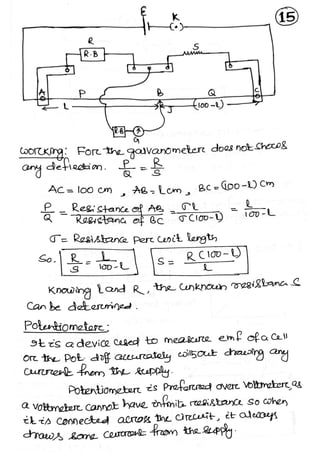 E K
15
R
R.B
S
A P B Q C
J
l (100-l)
R.B G
Working: Forc the galvanometerc does not shows
any deflection. P/Q = R/S
AC = 100 cm , AB = l cm , BC = (100-l) cm
P/Q = Resistance of AB / Resistanc of BC = σl / σ(100-l) = l / 100-l
σ = Resistance perc unit length
So. R/S = l / 100-l S = R(100-l) / l
Knowing l and R, the unknown resistanc S
can be determined.
Potentiometerc:
It is a device used to measure emf of a cell
orc the pot diff accurately without drawing any
currcent from the supply.
Potentiometerc is preferred overc voltmeterc, as
a voltmeterc cannot have infinite resistance so when
it is connected across the circuit, it always
draws some currcent from the supply.